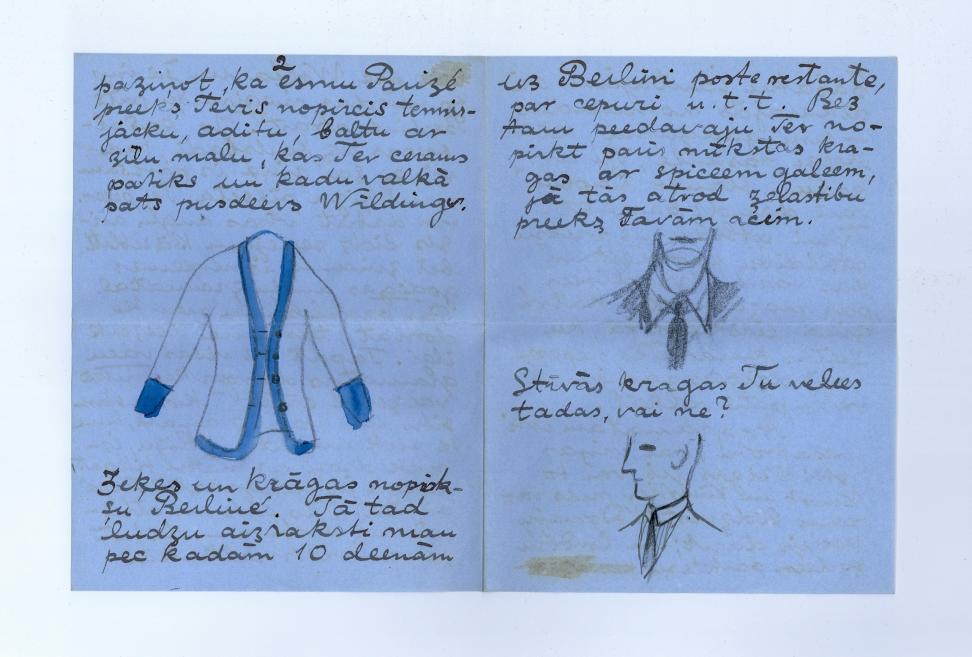 2
paziņot, ka esmu Parizē
preeks Tevis nopircis tennis-
jācku, aditu, baltu ar
zilu malu, kas Tev cerams
patiks un kadu valkā
pats pusdeevs Wildings.
Zeķes un krāgas nopirk-
šu Berlinē. Tā tad
lūdzu aizraksti man
pec kadām 10 deenām
uz Berlini poste restante,
par cepuri u.t.t. Bez
tam peedavaju Tev no-
pirkt paris mīkstas kra-
gas ar spiceem galeem,
ja tās atrod želastibu
preekš Tavām acim.
Stīvās kragas Tu velces
tadas, vai ne?